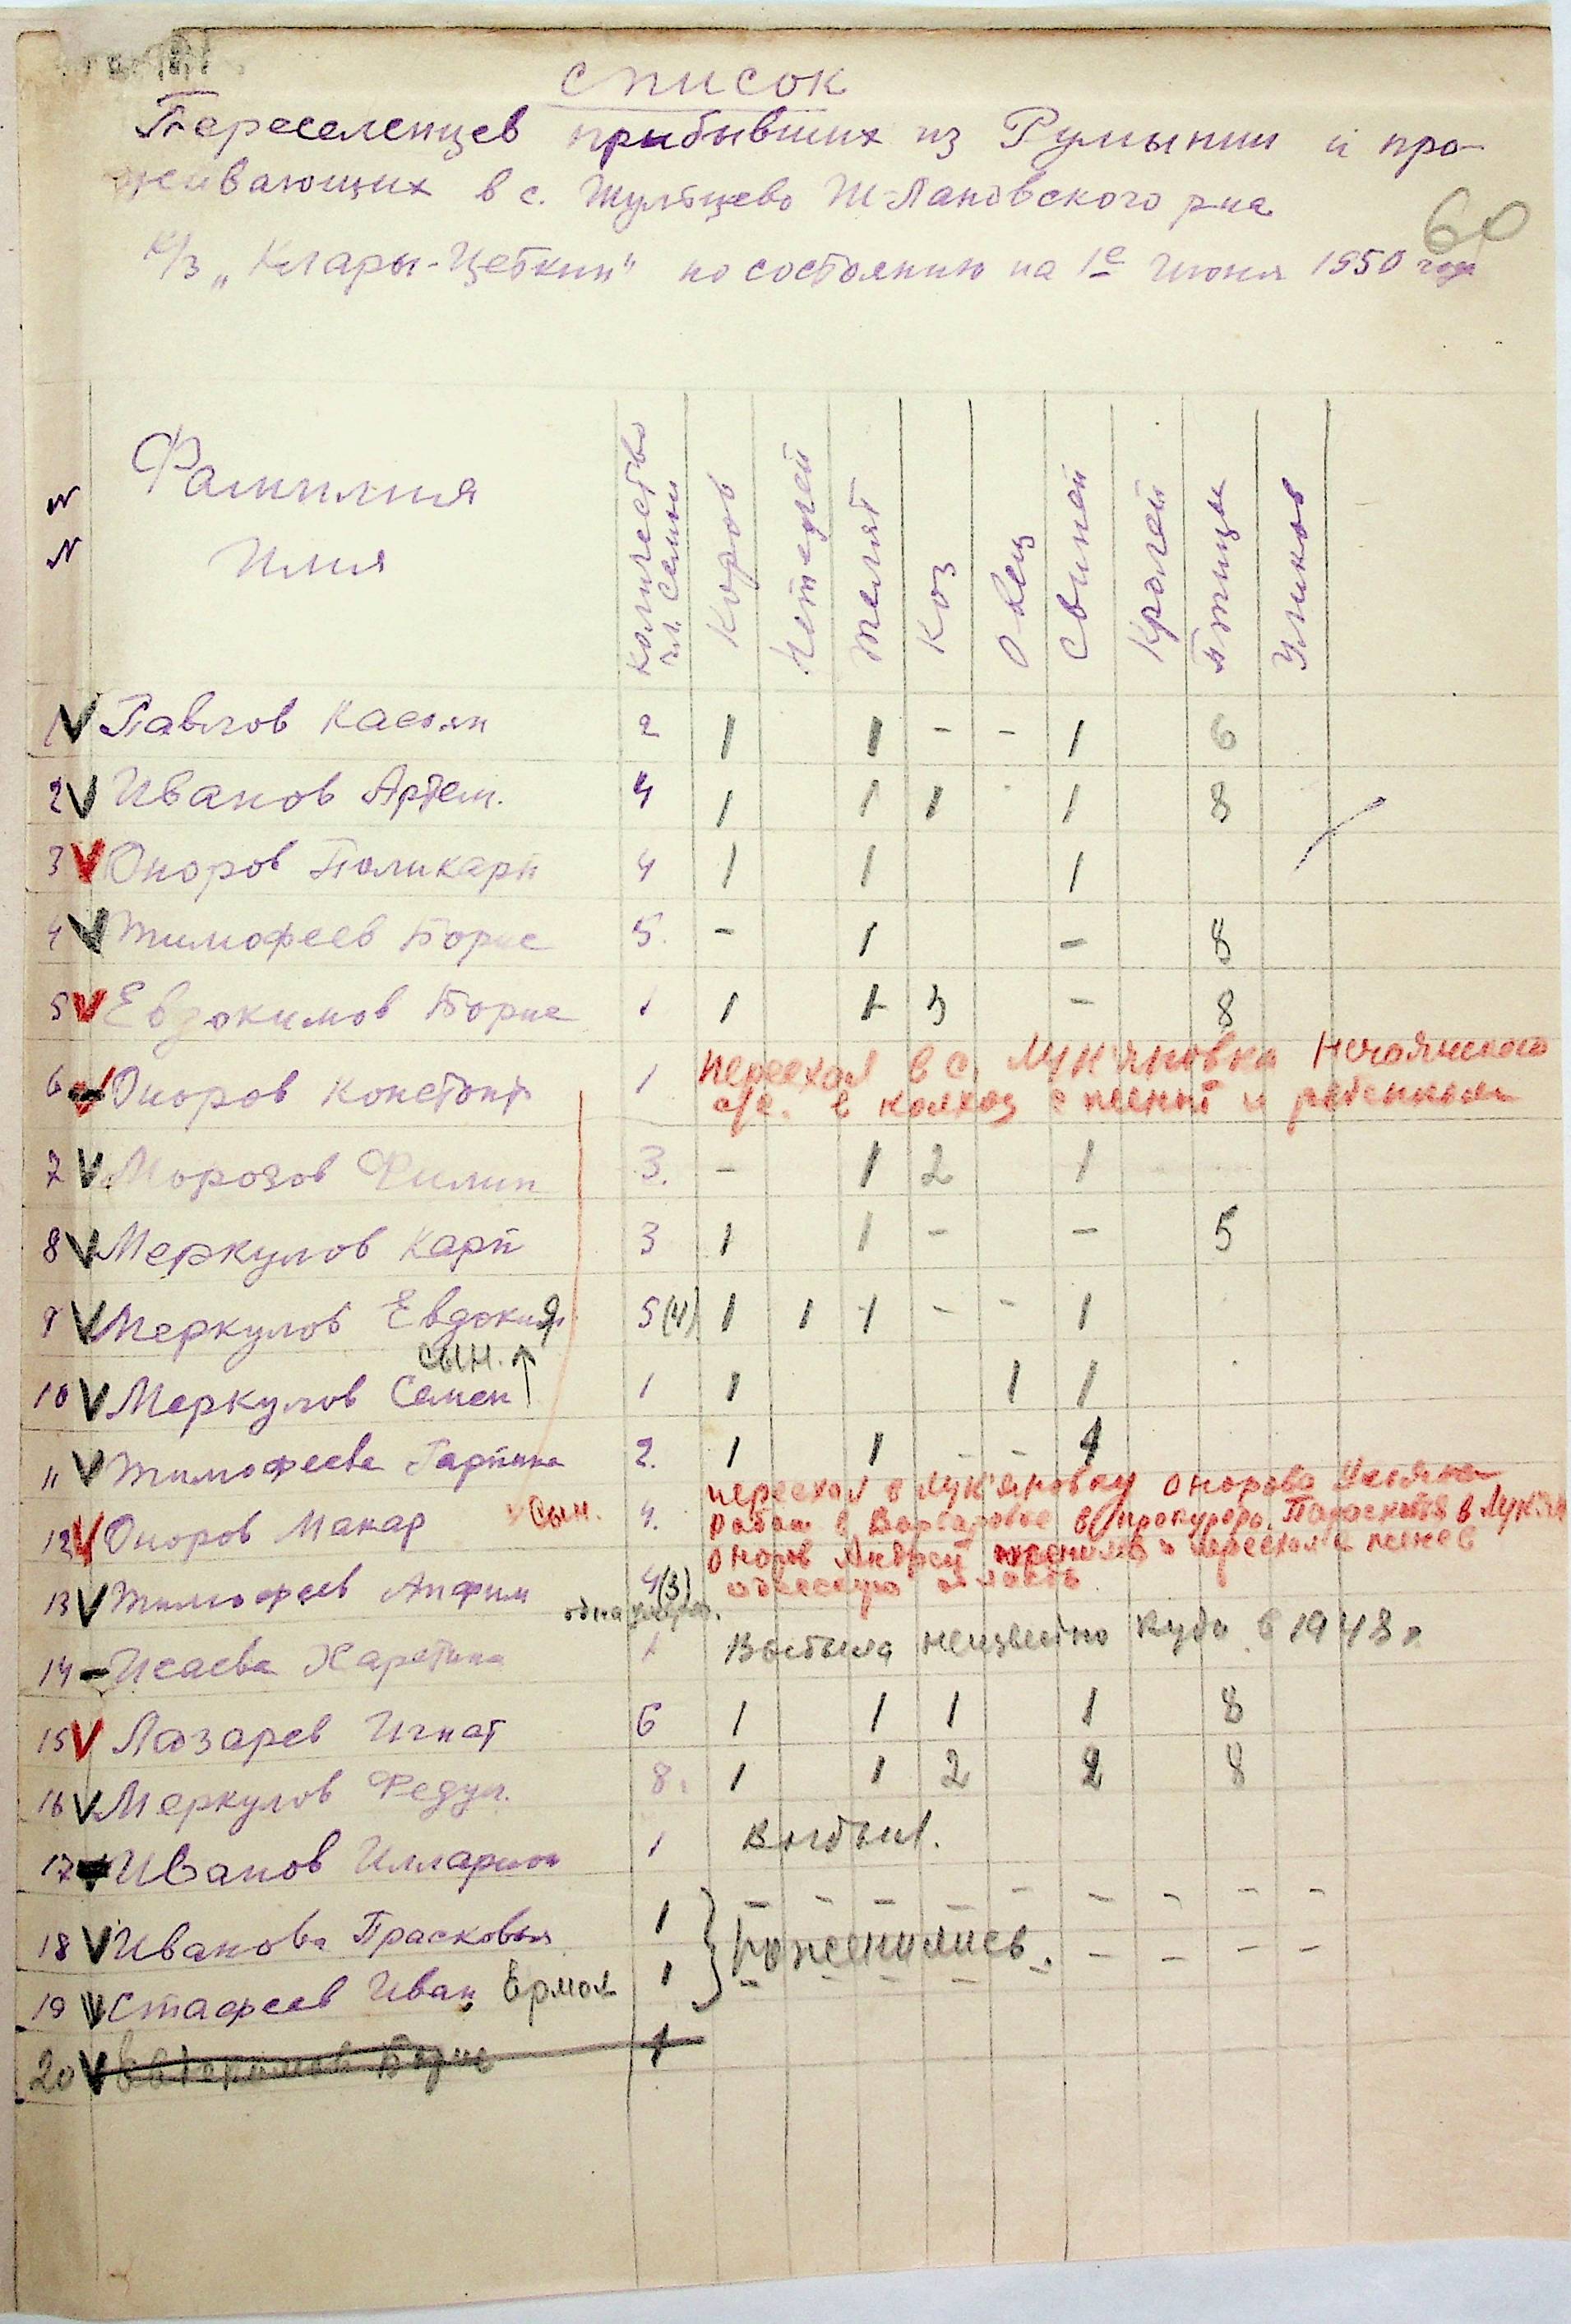 список
60
Переселенцев прибывших из Румынии и про-
живающих в с. Шульцево Ш-Лановского р-на
К/з "Клары-Цеткин" по состоянию на 1е Июня 1950 года
N N Фамилия Имя Количество чл. семьи Коров Нетелей Телят Коз Овец Свиней Кролей Птицы Ульков
1 V Павлов Касьян 2 1 1 - - 1 6
2 V Иванов Артем. 4 1 1 1 1 8
3 V Оноров Поликарп 4 1 1 1
4 V Тимофеев Борис 5. - 1 - 8
5 V Евдокимов Борис 1 1 1 3 - 8
6 Оноров Констант 1 переехал в с. Лук'яновка
с/с. в колхоз с женой и ребенком
7 V Морозов Филип 3. - 1 2 1
8 V Меркулов Карп 3 1 1 - - 5
9 V Меркулов Евдокия 5 (4) 1 1 1 - - 1
сын. ↑
10 V Меркулов Семен 1 1 1 1
11 V Тимофеева Гарпина 2. 1 1 - - 1
12 V Оноров Макар сын. 4. переехал в Лук'яновку Онорова
работ в в Параскева в Лук'ян
Оноров Андрей женился и переехал
13 V Тимофеев Анфим 4 (3)
одна
14 - Исаева Харетина 1 Выбыла неизвестно куда в 1948 г.
15 V Лазарев Игнат 6 1 1 1 1 8
16 V Меркулов Федул. 8. 1 1 2 2 8
17 Иванов Илларион 1 выбыл.
18 V Иванова Прасковья 1 - - - - - - - - -
поженились.
19 V Стафеев Иван Ермол 1 - - - - - - - - -
20 V Евдокимов Борис 1